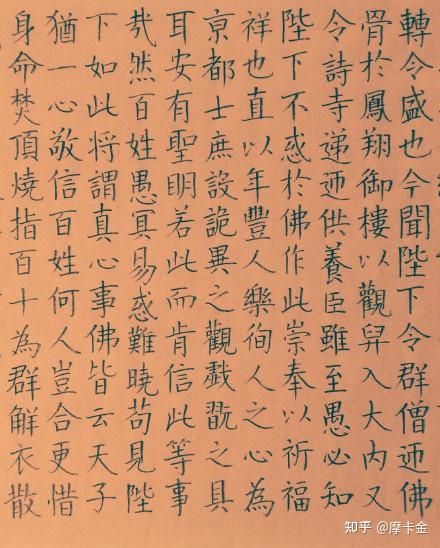 轉令盛也今聞陛下令群僧迎佛
骨於鳳翔御樓以觀舁入大内又
令詩寺递迎供養臣雖至愚必知
陛下不惑於佛作此崇奉以祈福
祥也直以年豐人樂徇人之心為
京都士庶設詭異之觀戲翫之具
耳安有聖明若此而肯信此等事
哉然百姓愚冥易惑難曉苟見陛
下如此将謂真心事佛皆云天子
猶一心敬信百姓何人豈合更惜
身命焚頂燒指百十為群解衣散
知乎 @摩卡金